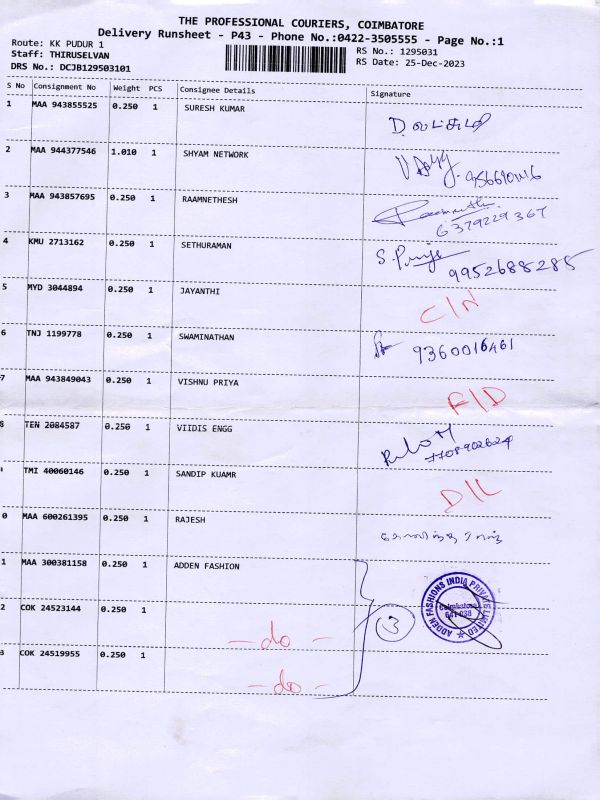 THE PROFESSIONAL COURIERS, COIMBATORE
Delivery Runsheet - P43 - Phone No.:0422-3505555 - Page No.:1
Route: KK PUDUR 1
Staff: THIRUSELVAN
RS No.: 1295031
DRS No.: DCJB129503101
RS Date: 25-Dec-2023
S No Consignment No Weight PCS Consignee Details Signature
1 MAA 943855525 0.250 1 SURESH KUMAR
2 MAA 944377546 1.010 1 SHYAM NETWORK
3 MAA 943857695 0.250 1 RAAMNETHESH
6379229367
4 KMU 2713162 0.250 1 SETHURAMAN S. Priya
9952688285
5 MYD 3044894 0.250 1 JAYANTHI C/N
6 TNJ 1199778 0.250 1 SWAMINATHAN 9360016461
7 MAA 943849043 0.250 1 VISHNU PRIYA F/D
8 TEN 2084587 0.250 1 VIIDIS ENGG
7708902624
TMI 40060146 0.250 1 SANDIP KUAMR D/L
0 MAA 600261395 0.250 1 RAJESH
1 MAA 300381158 0.250 1 ADDEN FASHION
2 COK 24523144 0.250 1 - do -
3
ADDEN FASHIONS INDIA PRIVATE LIMITED
Coimbatore
641 038
3 COK 24519955 0.250 1 - do -